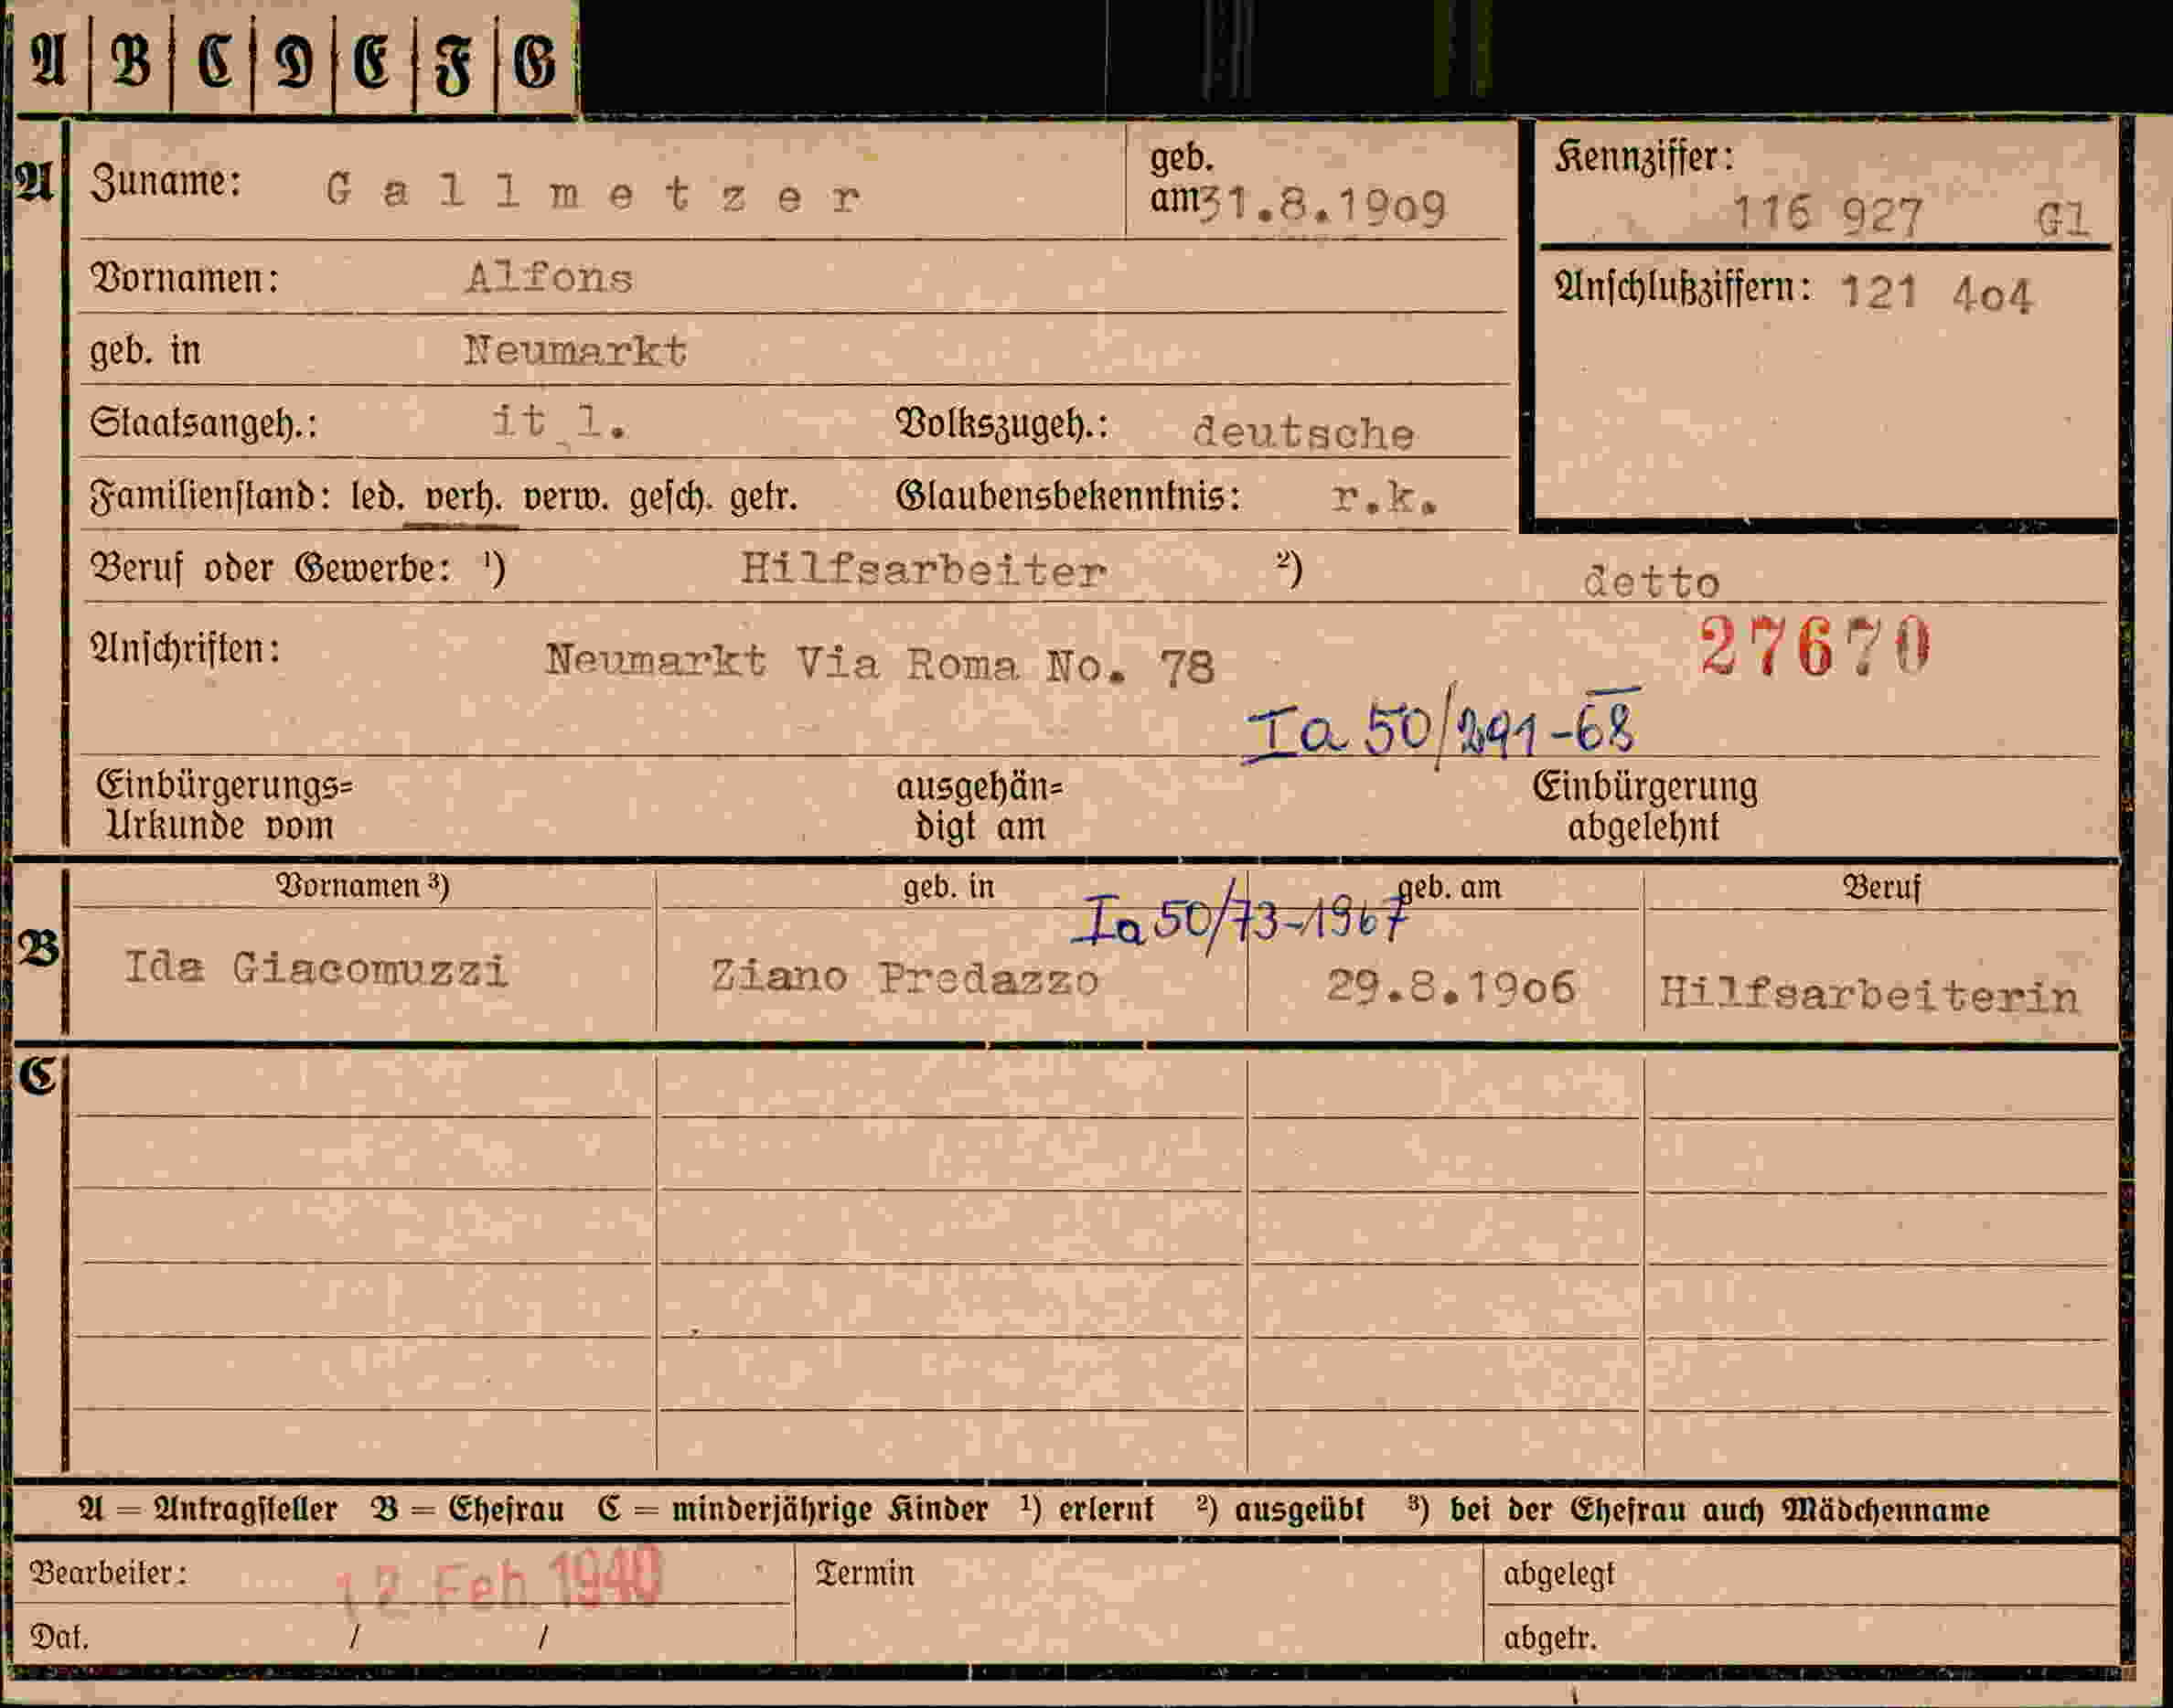 A B C D E F G
A Zuname: Gallmetzer geb. am 31.8.1909 Kennziffer: 116 927 Gl
Vornamen: Alfons Anschlußziffern: 121 404
geb. in Neumarkt
Staatsangeh.: it l. Volkszugeh.: deutsche
Familienstand: led. verh. verw. gesch. getr. Glaubensbekenntnis: r.k.
Beruf oder Gewerbe: ¹) Hilfsarbeiter ²) detto
27670
Anschriften: Neumarkt Via Roma No. 78
Ia 50/291-68
Einbürgerungs= ausgehän= Einbürgerung
Urkunde vom digt am abgelehnt
Vornamen ³) geb. in geb. am Beruf
Ia 50/73-1967
B Ida Giacomuzzi Ziano Predazzo 29.8.1906 Hilfsarbeiterin
C
A = Antragsteller B = Ehefrau C = minderjährige Kinder ¹) erlernt ²) ausgeübt ³) bei der Ehefrau auch Mädchenname
Bearbeiter: 12. Feb. 1940 Termin abgelegt
Dat. / / abgetr.